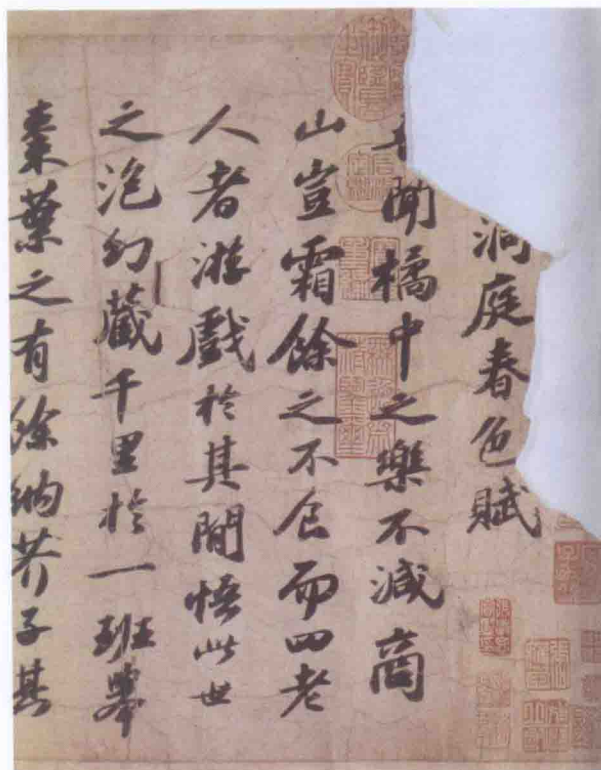 洞庭春色賦
聞橘中之樂不減商
山豈霜餘之不食而四老
人者游戲於其間悟此世
之泡幻藏千里於一班舉
棗葉之有餘納芥子其